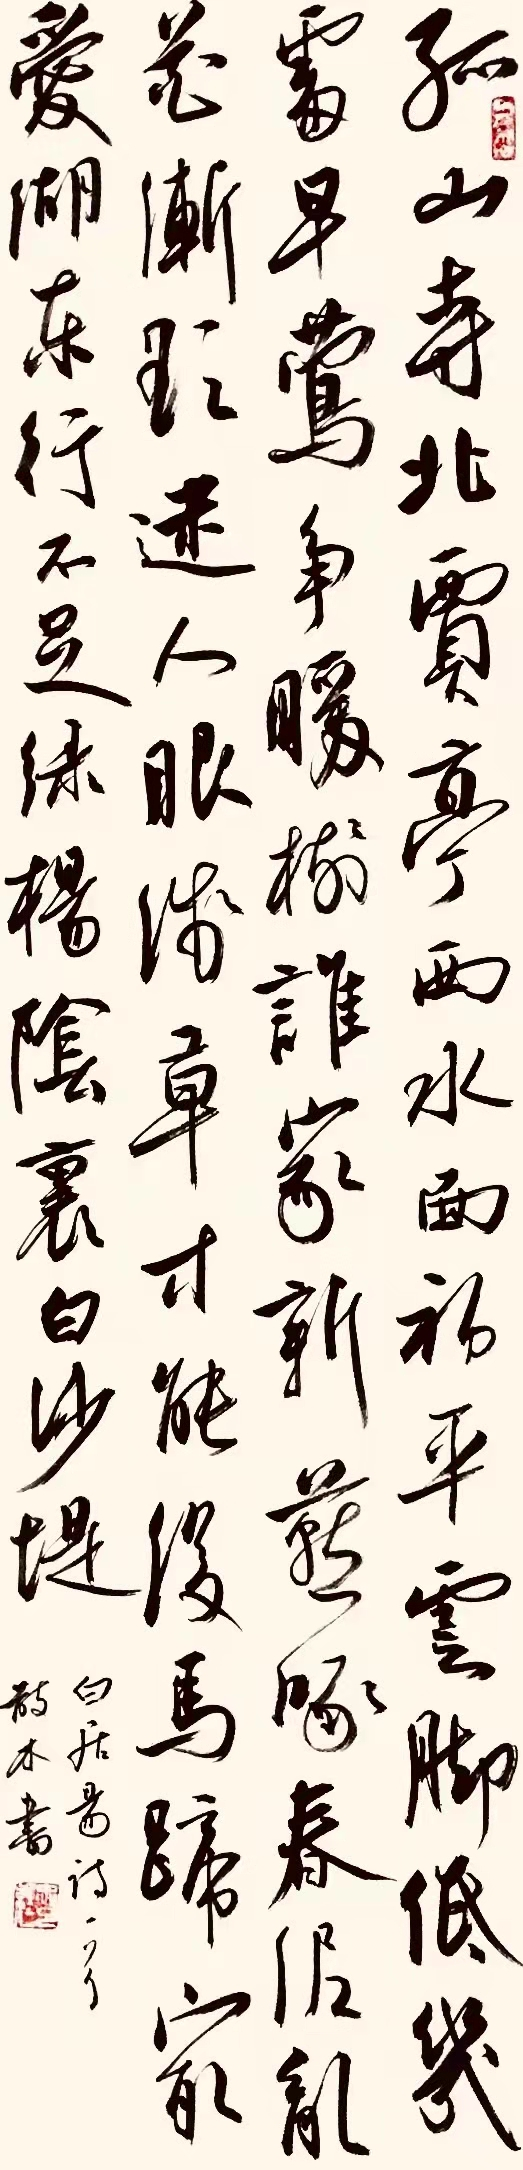 孤山寺北賈亭西水面初平雲脚低幾
處早鶯争暖樹誰家新燕啄春泥亂
花漸欲迷人眼淺草才能没馬蹄最
愛湖東行不足綠楊陰裏白沙堤
白居易詩一首
散木書